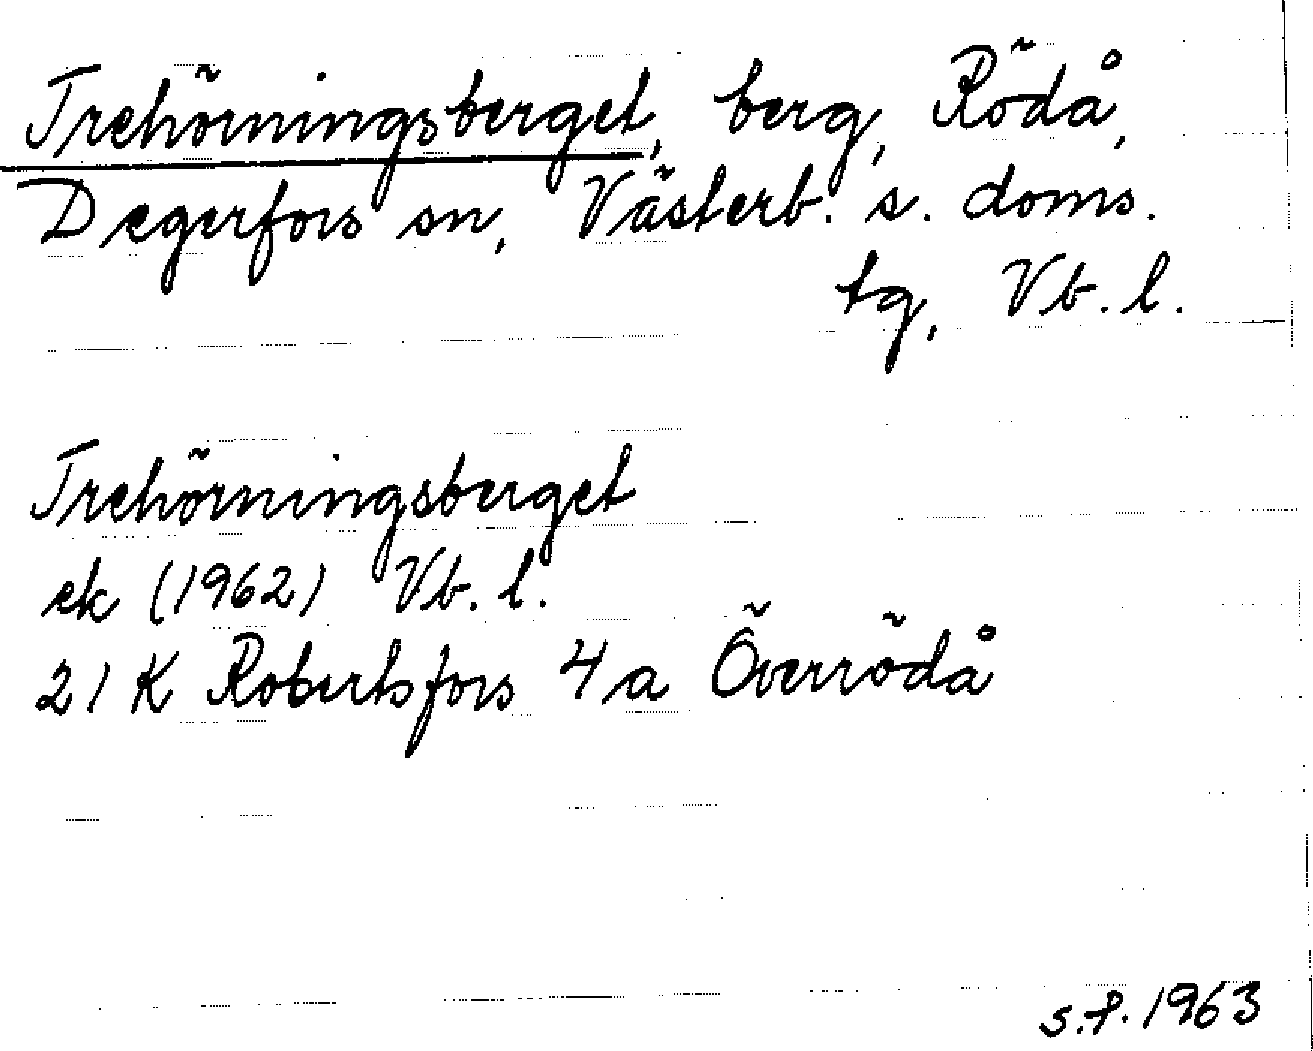 Trehörningsberget, berg, Rödå,
Degerfors sn, Västerb. s. doms.
tg, Vb. l.
Trehörningsberget
ek (1962) Vb. l.
21 K Robertsfors 4 a Överrödå
s.f. 1963